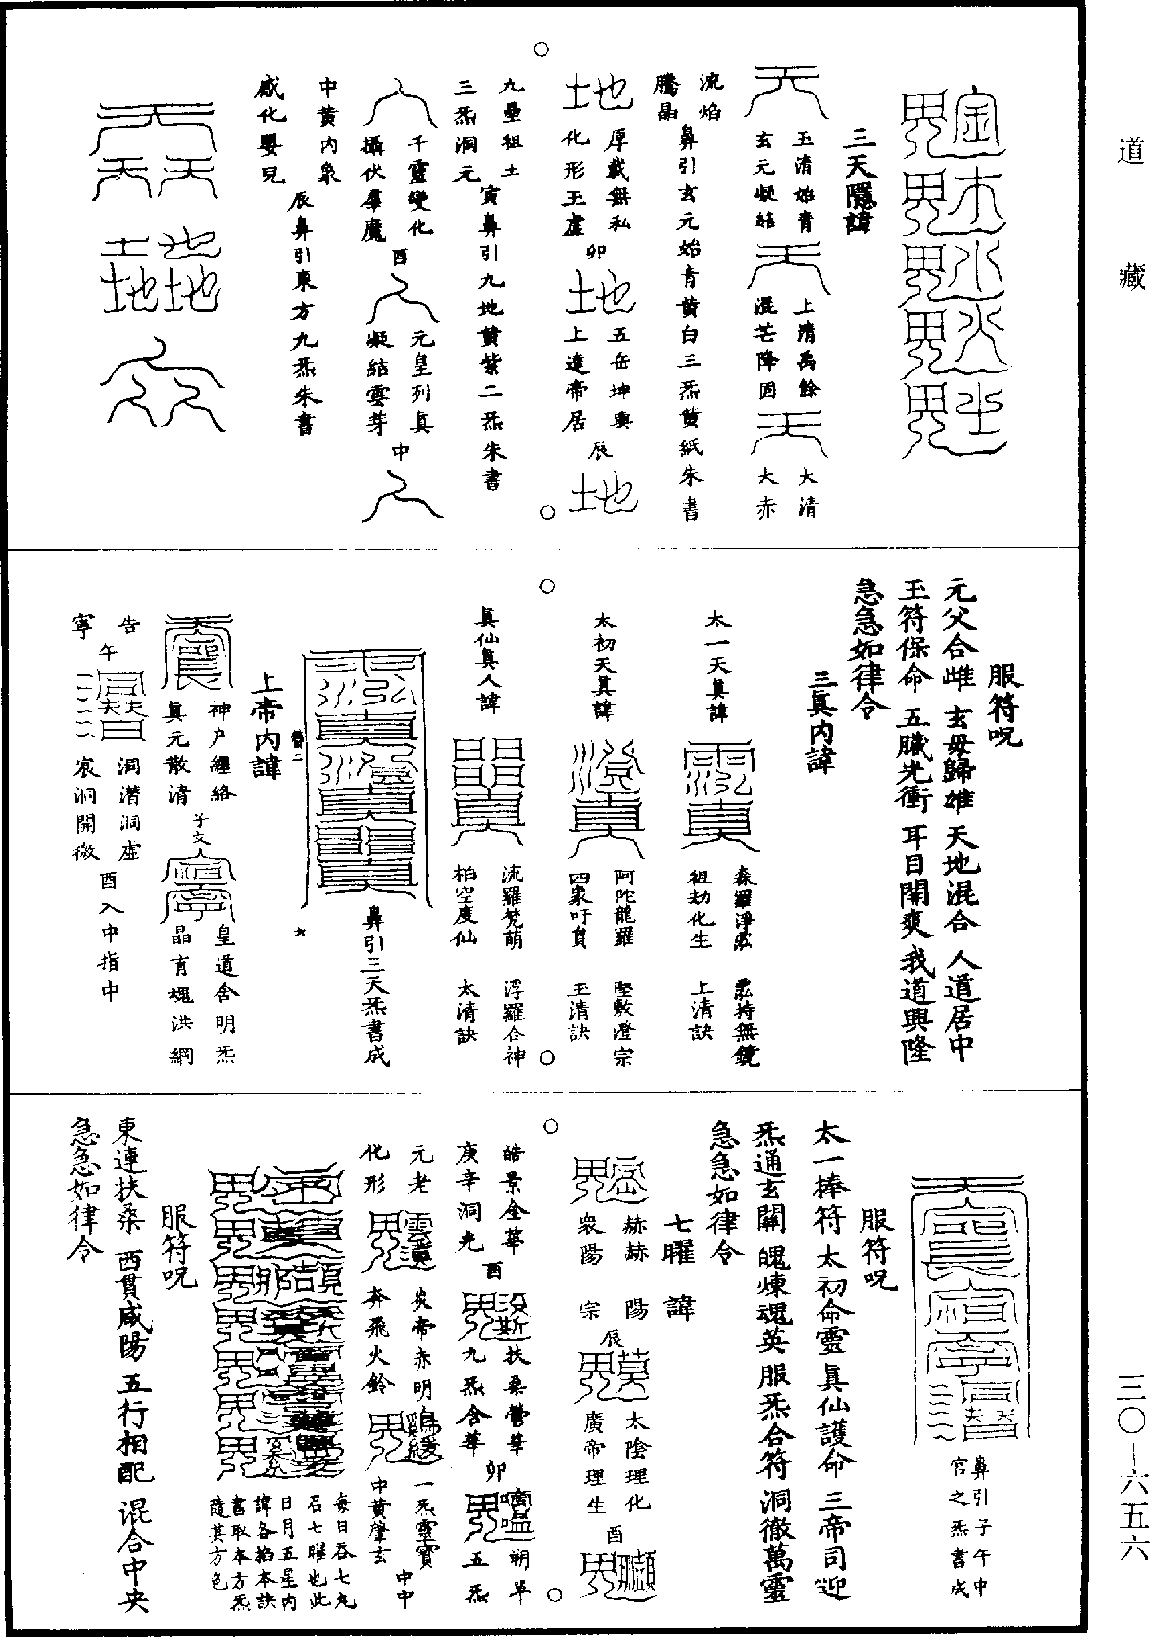 道藏
三〇—六五六
三天隱諱
玉清始青
玄元凝結
上清禹餘
混芒降因
太清
太赤
流焰
騰晶
鼻引玄元始青黄白三炁黄紙朱書
厚載無私
化形玉虚
卯
五岳坤輿
上達帝居
辰
九壘祖土
三炁洞元
寅鼻引九地黄紫二炁朱書
千靈變化
攝伏羣魔
酉
元皇列真
凝結雲芽
中
中黄内象
感化嬰兒
辰鼻引東方九炁朱書
服符呪
元父合雌 玄母歸雄 天地混合 人道居中
玉符保命 五臟光衝 耳目開爽 我道興隆
急急如律令
三真内諱
太一天真諱
祖劫化生
上清訣
太初天真諱
阿陀龍羅
堅敷澄宗
玉清訣
真仙真人諱
流羅梵萌
柏空度仙
浮羅合神
太清訣
鼻引三天炁書成
上帝内諱
神户經絡
真元散清
子文
皇道舍明炁
晶育魂洪綱
告
寧
午
洞潜洞虚
哀洞開微
酉入中指中
鼻引子午中
官之炁書成
服符呪
太一捧符 太初命靈 真仙護命 三帝司迎
炁通玄關 魄煉魂英 服炁合符 洞徹萬靈
急急如律令
七曜諱
赫赫陽
衆陽宗
辰
太陰理化
廣帝理生
酉
皓景金華
庚辛洞光
酉
扶桑營華
九炁含華
卯
朔單
五炁
元老
化形
炎帝赤明
奔飛火鈴
一炁靈寶
中黄肇玄
中中
每日吞七丸
石七曜也此
日月五星内
諱各掐本訣
書取本方炁
隨其方色
服符呪
東連扶桑 西貫咸陽 五行相配 混合中央
急急如律令